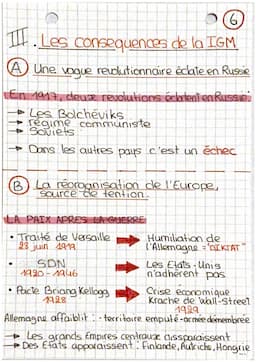 6
III. Les consequences de la IGM
A Une vague revolutionnaire éclate en Russie
En 1917, deux revolutions éclatent en Russie.
→ Les Bolchéviks
→ régime communiste
→ Soviets
→ Dans les autres pays c'est un échec
B La réorganisation de l'Europe,
source de tention.
LA PAIX APRES LA GUERRE
• Traité de Versaille → Humiliation de
28 juin 1919 l'Allemagne = "DIKTAT"
• SDN → Les Etats-Unis
1920-1946 n'adhérent pas
• Pacte Briang Kellogg → Crise économique
1928 Krache de Wall-street
1929
Allemagne affaiblit : - territoire emputé - armée démembrée
→ Les grands Empires centraux disparaissent
→ Des Etats apparaissent : Finlande, Autriche, Hongrie